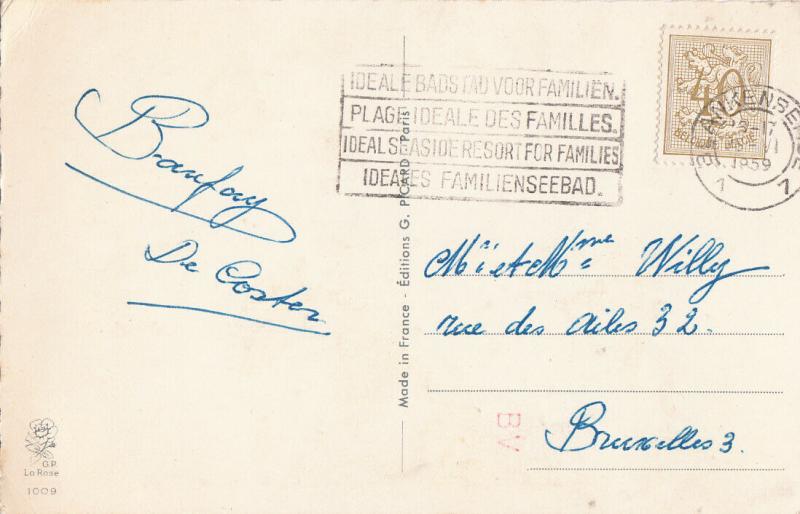 IDEALE BADSTAD VOOR FAMILIËN.
PLAGE IDEALE DES FAMILLES.
IDEAL SEASIDE RESORT FOR FAMILIES
IDEALES FAMILIENSEEBAD.
40
BELGIQUE BELGIE
BLANKENBERGE
1959
1 1
De Coster
Mr et Mme Willy
rue des ailes 32.
Bruxelles 3.
Made in France - Éditions G. PICARD - Paris
BV
G.P.
La Rose
1009